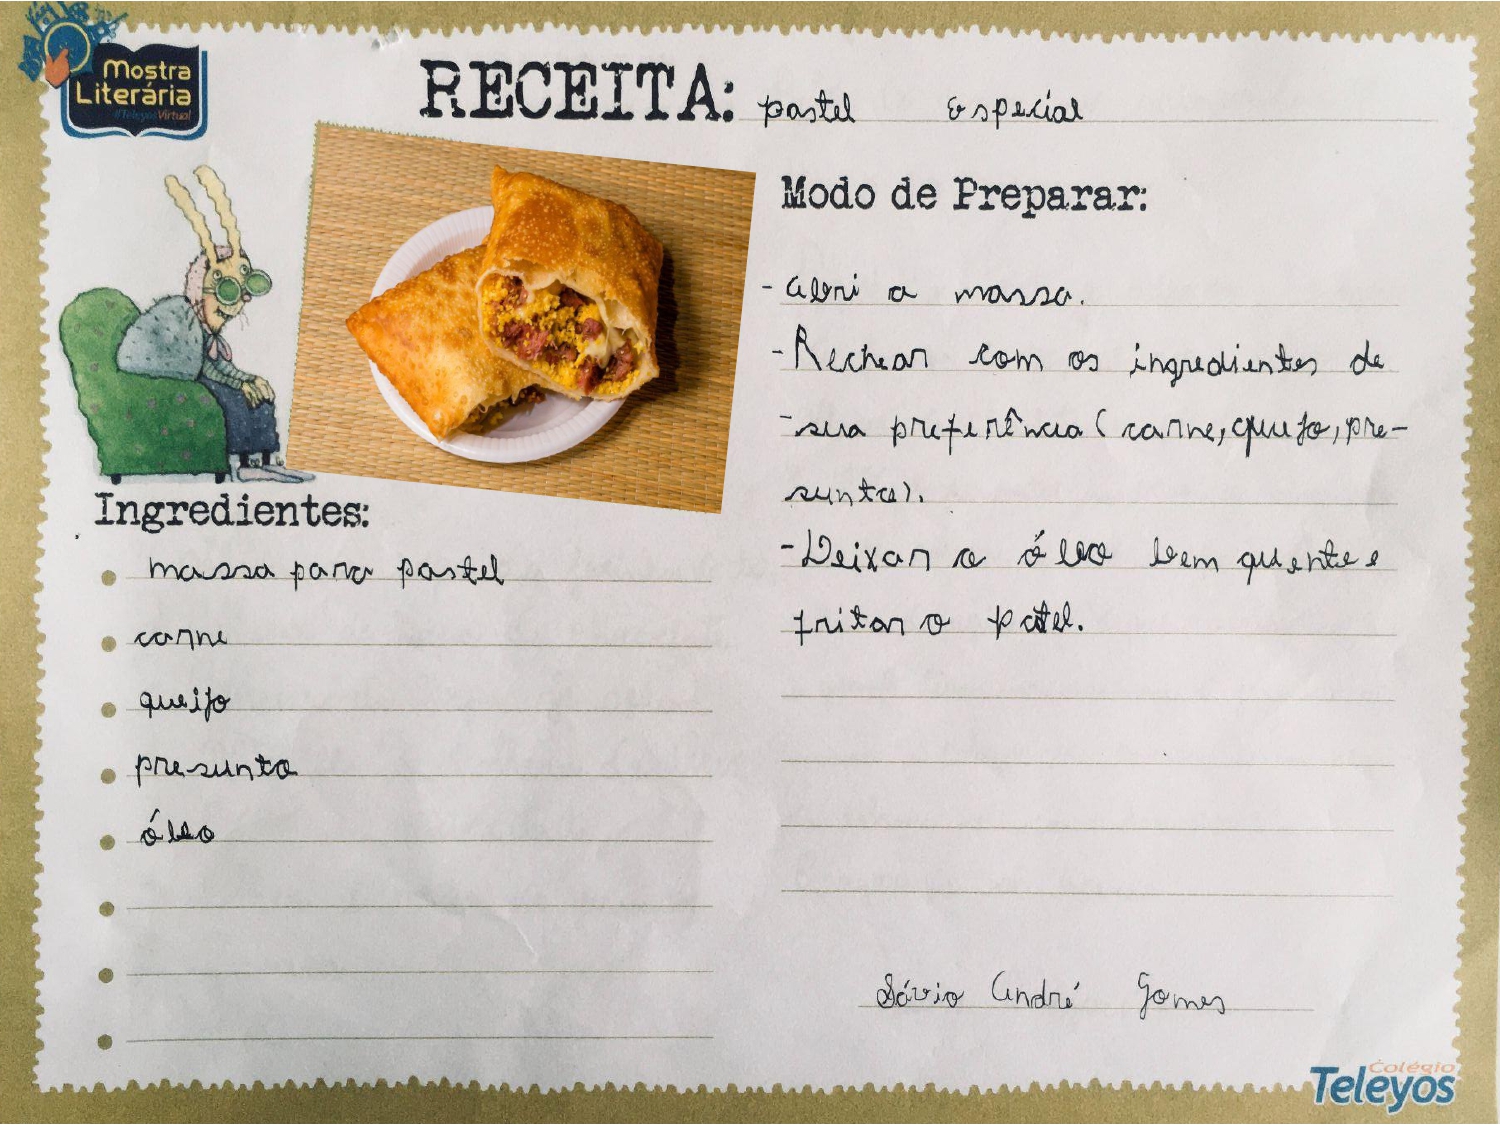 Mostra
Literária
#TeleyosVirtual
RECEITA: pastel Especial
Ingredientes:
massa para pastel
carne
queijo
presunto
óleo
Modo de Preparar:
- Abri a massa.
- Rechear com os ingredientes de
- sua preferência (carne, queijo, pre-
sunto).
- Deixar o óleo bem quente e
fritar o patel.
Sávio André Gomes
Colégio
Teleyos